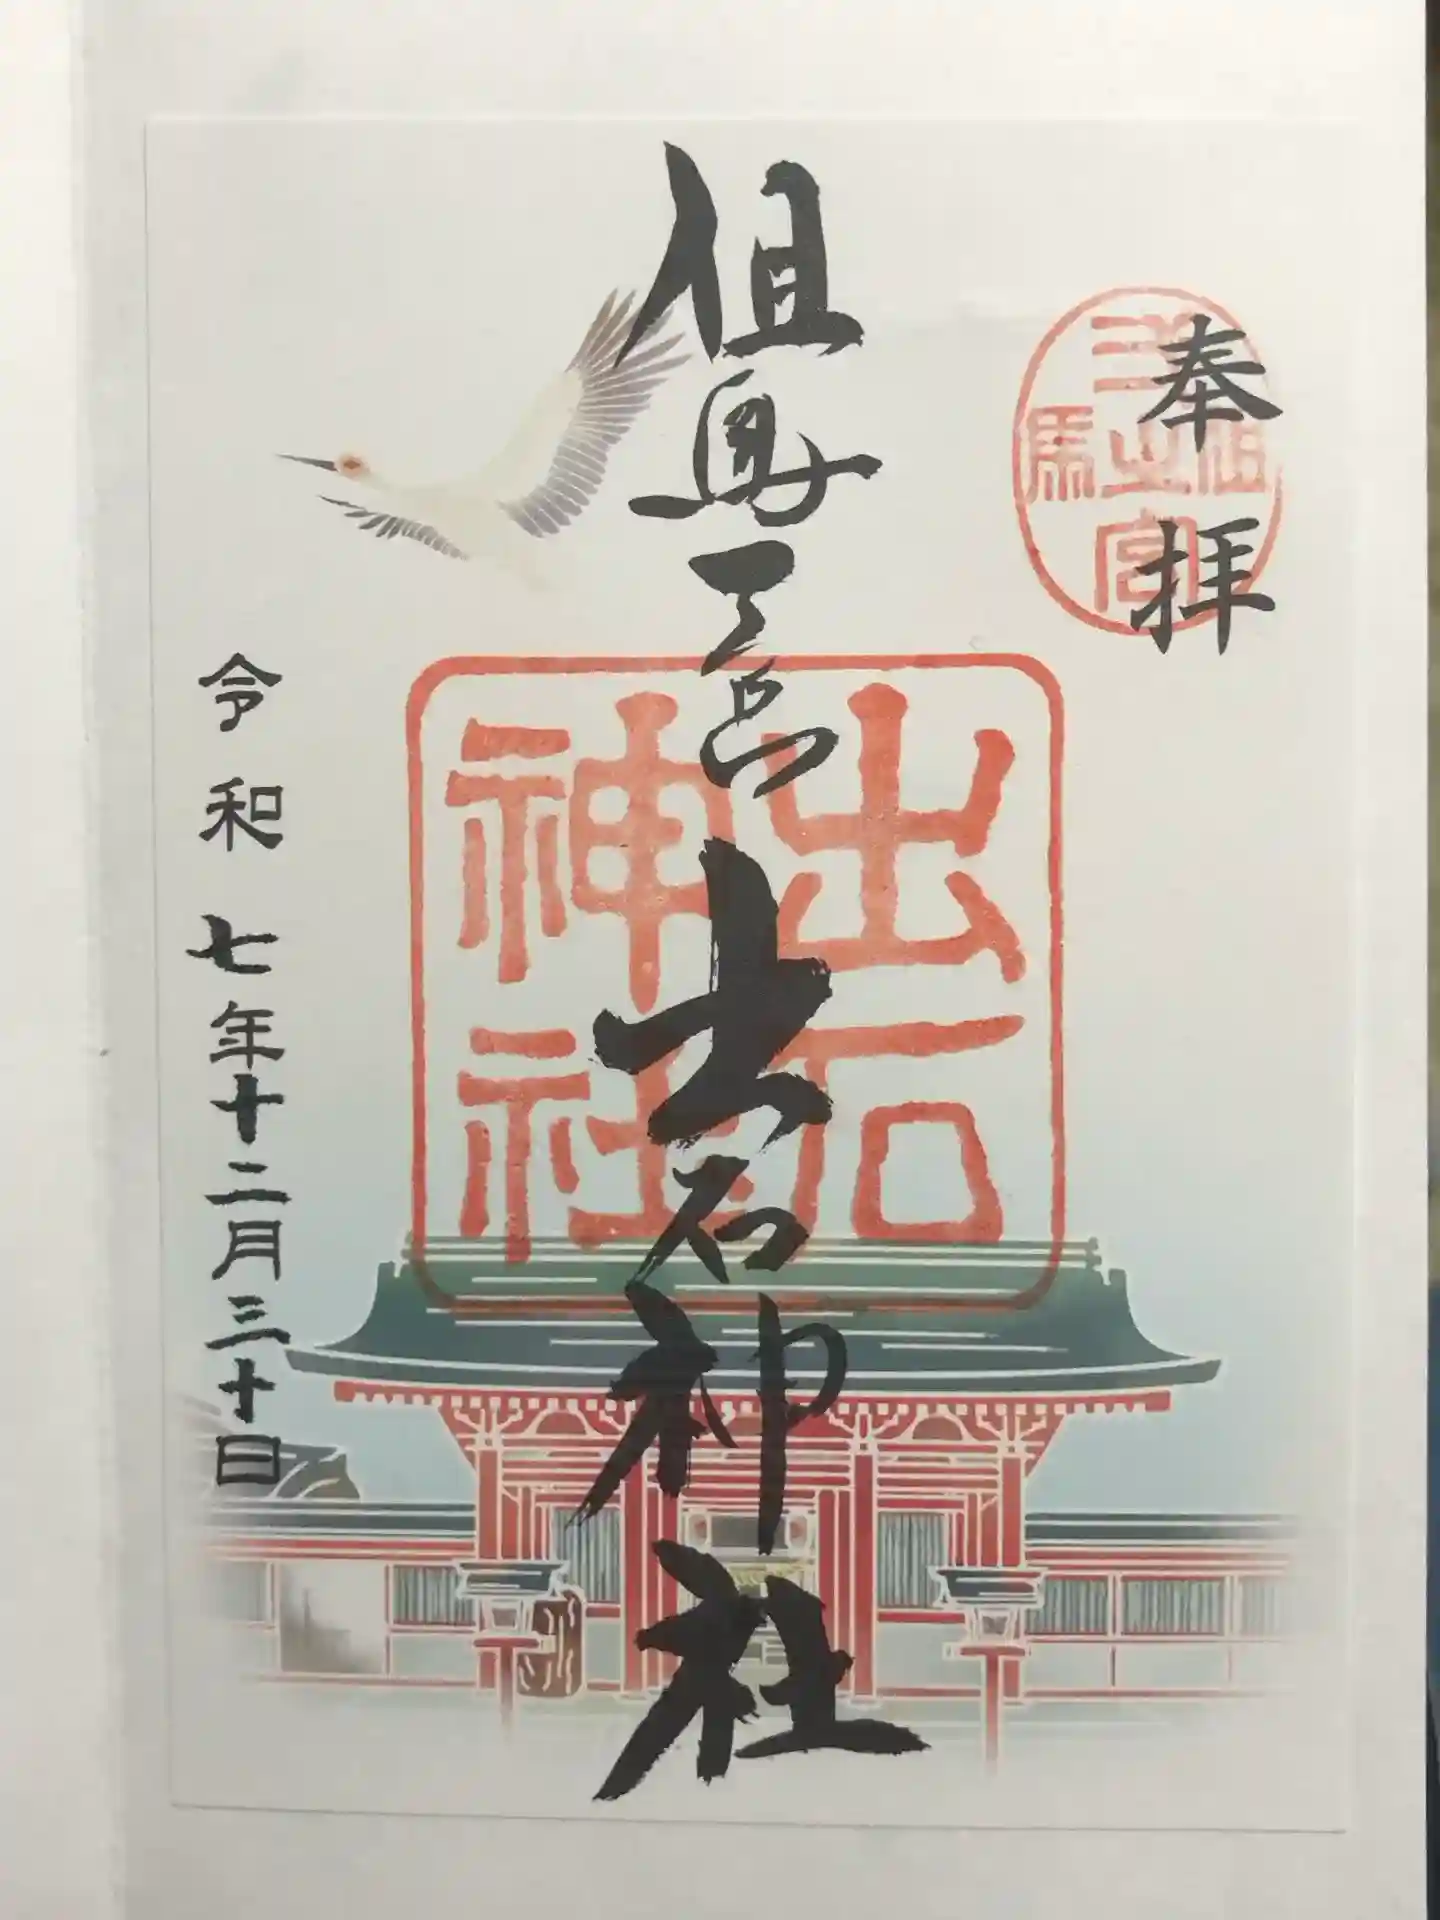 奉拝
但馬
之宮
但馬一宮出石神社
出石
神社
令和七年十二月三十日